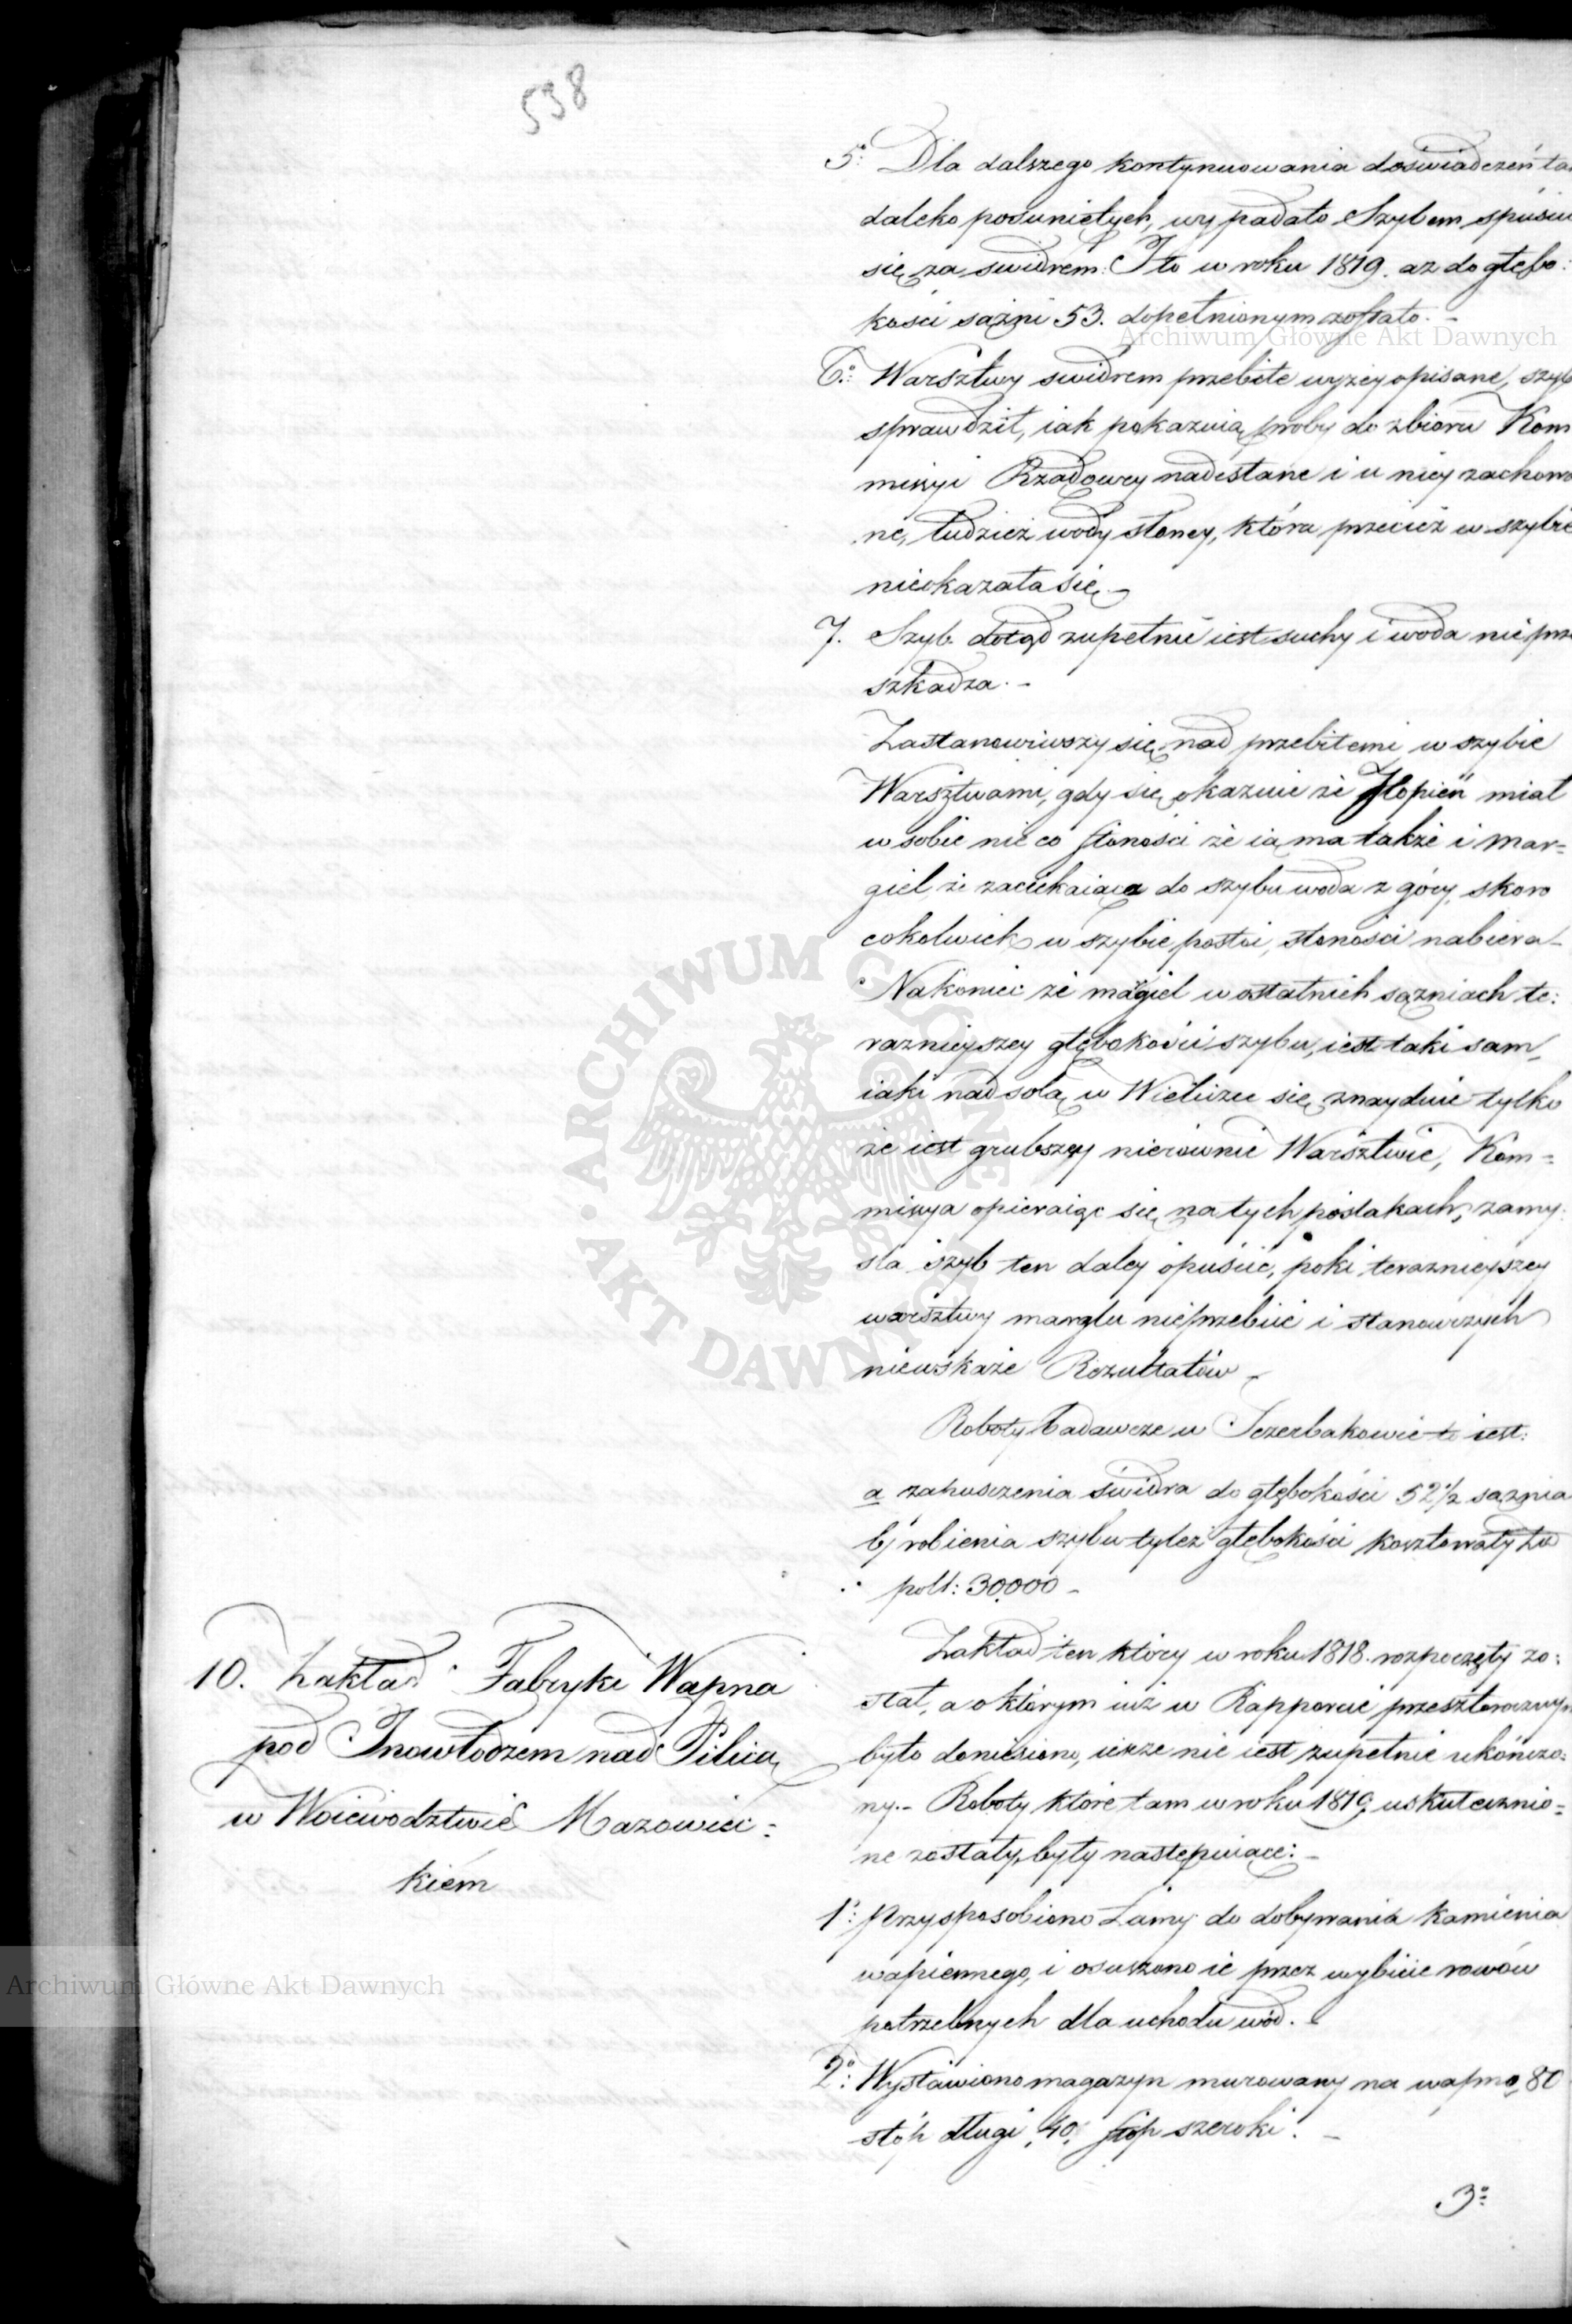 538
5º: Dla dalszego kontynuowania doswiadczeń ta
daleko posuniętych, wypadało Szybem spuści
się za swidrem. I to w roku 1819. az do głębo:
kości sążni 53. dopełnionym zostało. –
6º: Warsztwy swidrem przebite wyżey opisane, szyb
sprawdził, iak pokazuią proby do zbioru Kom
missyi Rządowey nadesłane i u niey zachowa
ne, tudzież wody słoney, która przecież w szybie
nieokazała się. –
7. Szyb dotąd zupełnie iest suchy i woda nie prze
szkadza. –
Zastanowiwszy się nad przebitemi w szybie
Warsztwami, gdy się okazuie że Iłopień miał
w sobie nieco słoności że ią ma także i mar=
giel, że zaciekaiąca do szybu woda z góry, skoro
cokolwiek w szybie postoi, słoności nabiera –
Nakoniec że margiel w ostatnich sążniach te:
raznieyszey głębokości szybu, iest taki sam,
iaki nad solą w Wieliczce się znayduie tylko
że iest grubszey nierównie Warsztwie, Kom=
missya opieraiąc się na tych poslakach, zamy:
sla szyb ten daley opuścić, poki teraznieyszey
warsztwy marglu nieprzebiie i stanowczych
niewskaże Rezultatów –
Roboty badawcze w Szczerbakowie to iest:
a zapuszczenia świdra do głębokości 52 1/2 sążnia
b) robienia szybu tyleż głębokości kosztowały Zł
pols: 30,000 –
10. Zakład Fabryki Wapna
pod Inowłodzem nad Pilicą
w Woiewodztwie Mazowiec=
kiém
Zakład ten który w roku 1818. rozpoczęty zo:
stał, a o którym iuż w Rapporcie przeszłorocznym
było doniesiono, ieszcze nie iest zupełnie ukończo:
ny. – Roboty które tam w roku 1819 uskutecznio=
ne zostały, były następuiące: –
1º: Przysposobiono Łamy do dobywania kamienia
wapiennego, i osuszono ie przez wybicie rowów
potrzebnych dla uchodu wód. –
2º: Wystawiono magazyn murowany na wapno, 80
stóp długi, 40, stóp szeroki. –
3º:
Archiwum Główne Akt Dawnych
ARCHIWUM GŁÓWNE AKT DAWNYCH
Archiwum Główne Akt Dawnych